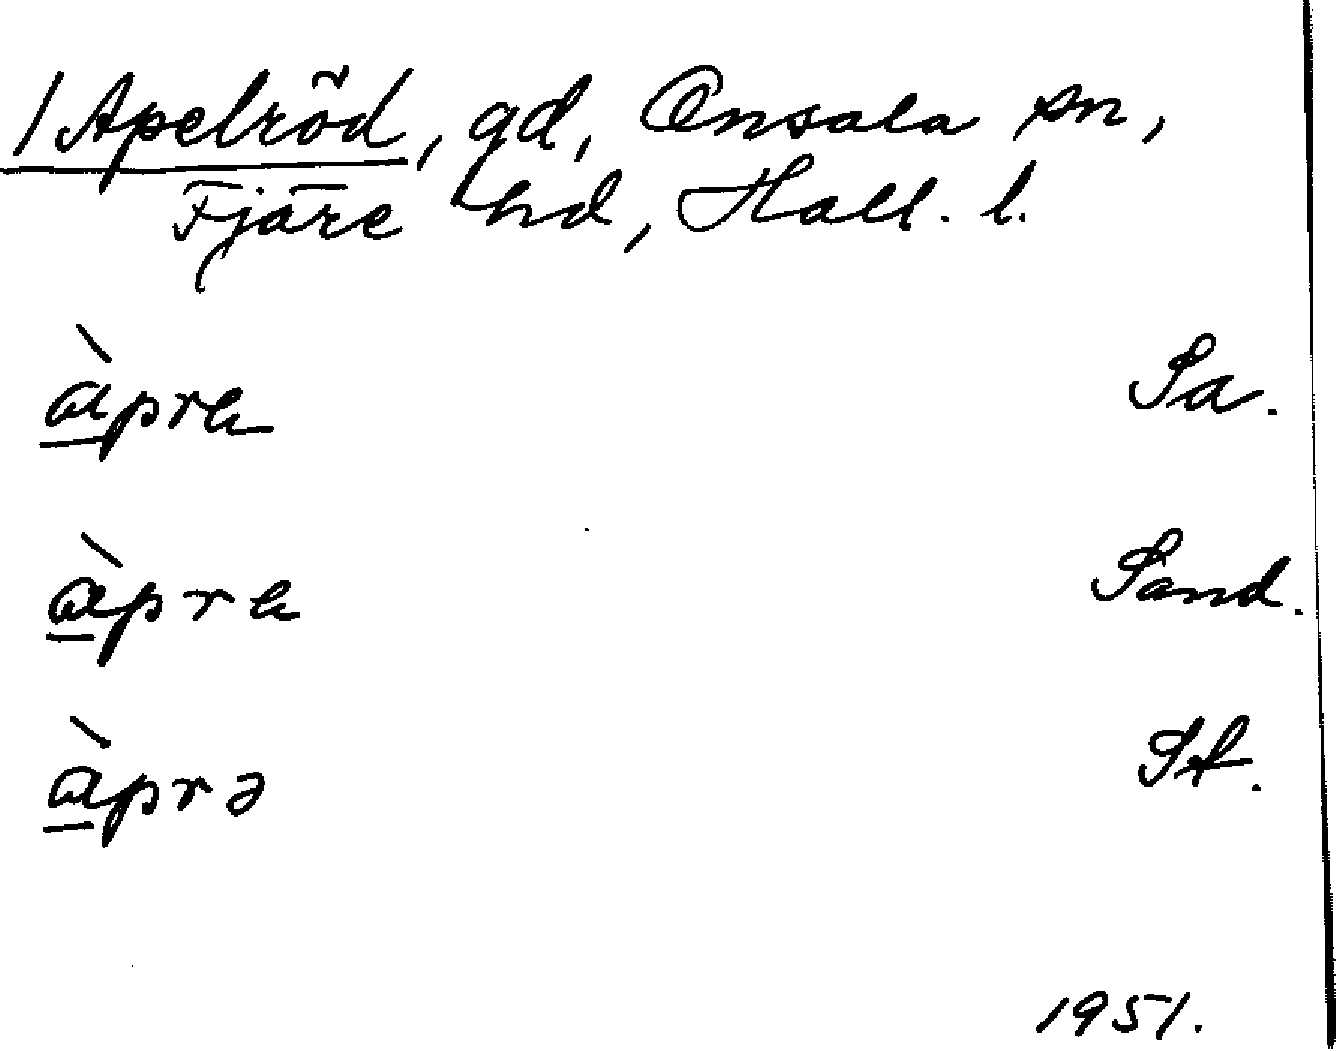 /Apelröd, gd, Onsala sn,
Fjäre hd, Hall. l.
àpra Sa.
àpra Sand.
àprə St.
1951.